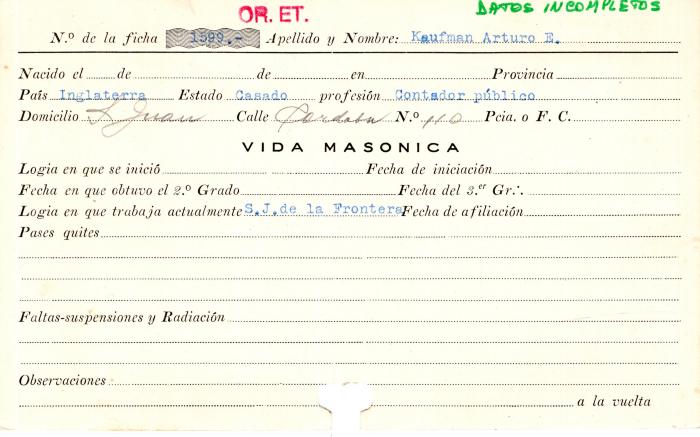 OR. ET. DATOS INCOMPLETOS
N.º de la ficha 1599.- Apellido y Nombre: Kaufman Arturo E.
Nacido el de de en Provincia
País Inglaterra Estado Casado profesión Contador público
Domicilio S Juan Calle Cordoba N.º 110 Pcia. o F. C.
VIDA MASONICA
Logia en que se inició Fecha de iniciación
Fecha en que obtuvo el 2.º Grado Fecha del 3.er Gr∴
Logia en que trabaja actualmente S.J.de la Frontera Fecha de afiliación
Pases quites
Faltas-suspensiones y Radiación
Observaciones
a la vuelta